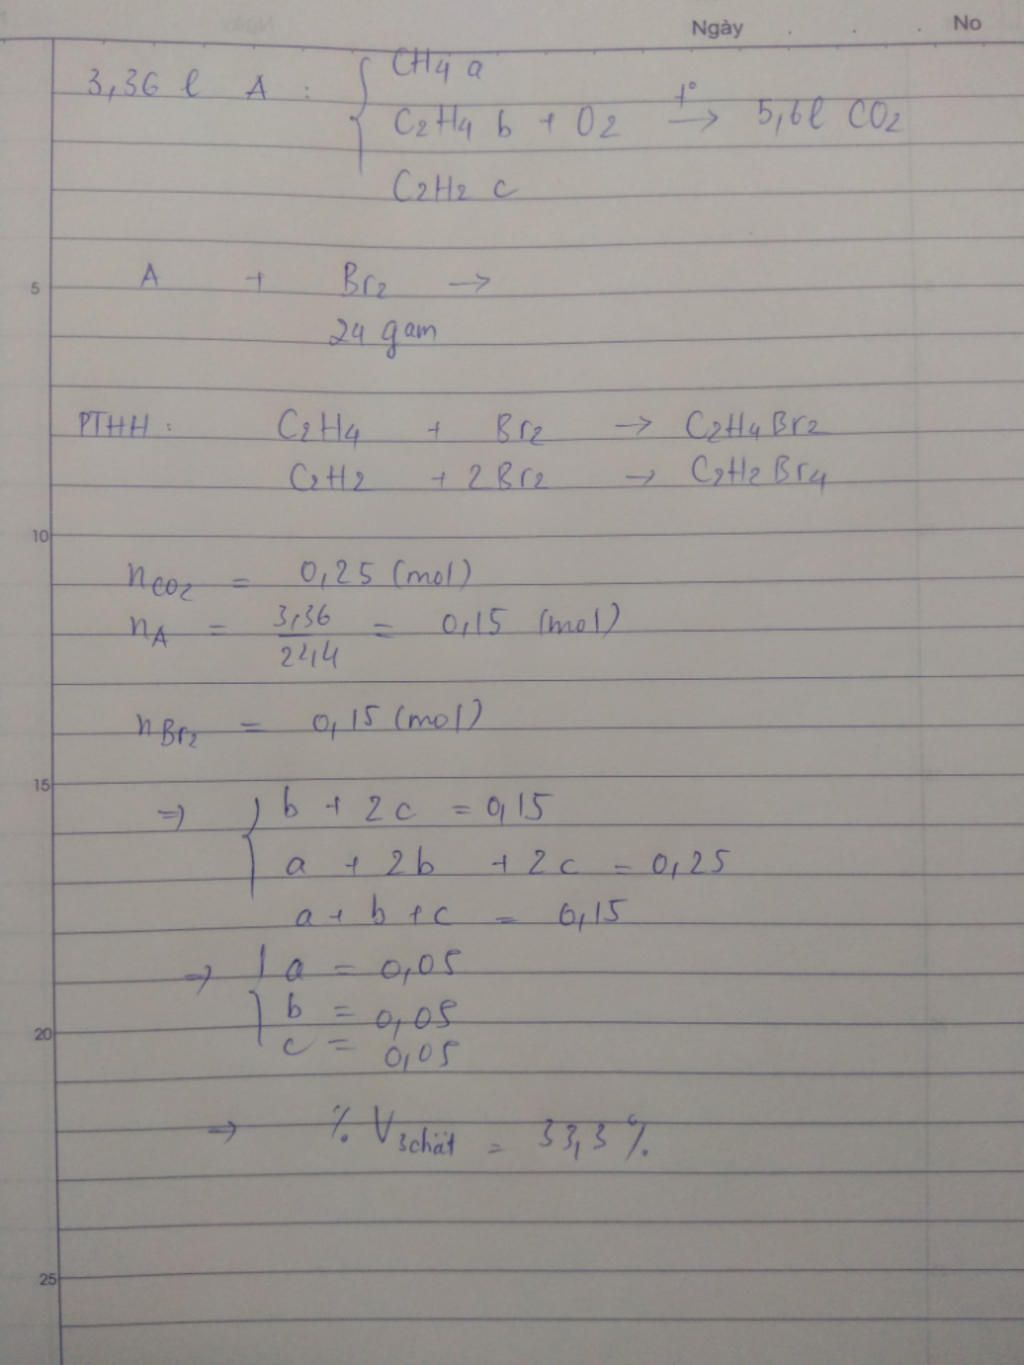 Ngày . . . No
3,36 l A : { CH4 a
C2H4 b + O2 t° → 5,6l CO2
C2H2 c
A + Br2 →
24 gam
PTHH : C2H4 + Br2 → C2H4Br2
C2H2 + 2Br2 → C2H2Br4
nCO2 = 0,25 (mol)
nA = 3,36/22,4 = 0,15 (mol)
nBr2 = 0,15 (mol)
⇒ { b + 2c = 0,15
a + 2b + 2c = 0,25
a + b + c = 0,15
⇒ { a = 0,05
b = 0,05
c = 0,05
⇒ % V3chất = 33,3 %
5
10
15
20
25